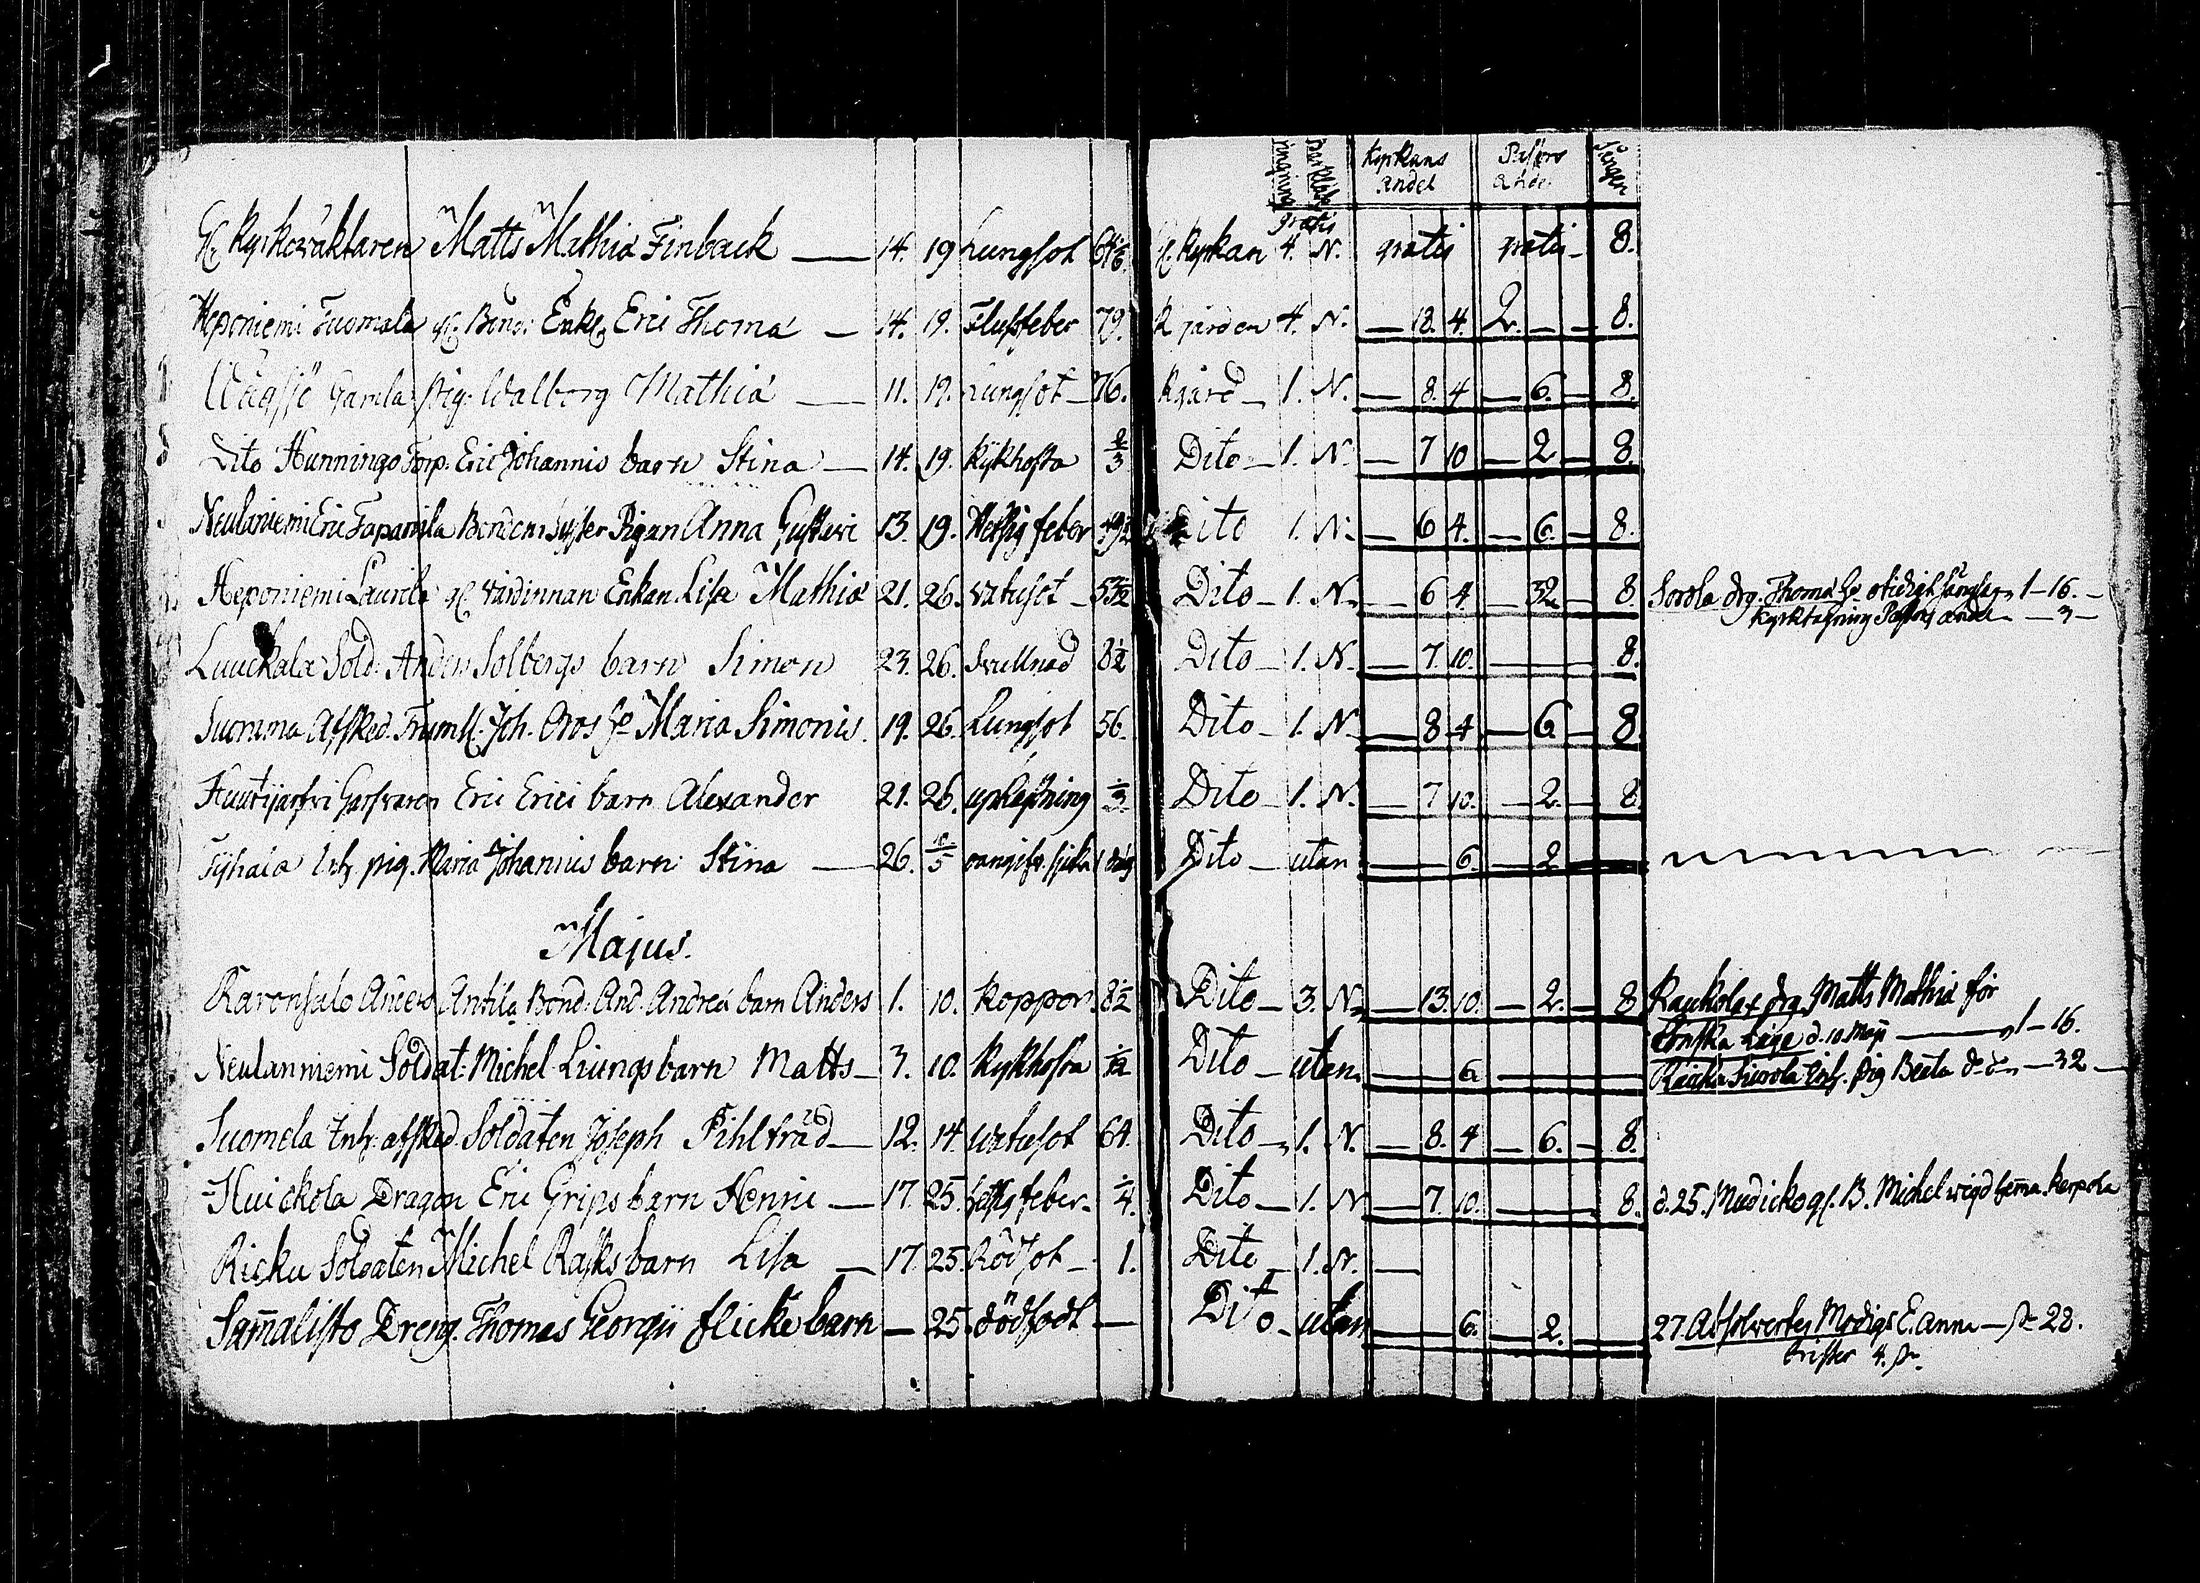 Kyrkans andel Pastors andel Sången
gl. Kyrkoväktaren Matts Mathiæ Finback — 14. 19 Lungsot 64 gl. Kyrkan 4. N. gratis gratis gratis — 8.
Heponiemi Tuomala gl. Bond: Enkl. Eric Thomæ — 14. 19. Flussfeber 79. K gården 4. N. — 18. 4. 2. — — 8.
Wägsjö Gamla pig. Walborg Mathiæ — 11. 19. Lungsot — 76. Kgård — 1. N. — 8. 4 — 6. — 8.
Dito Hunningo Torp. Eric Johannis barn Stina — 14. 19. Kykhosta 2/3 Dito — 1. N. — 7 10 — 2 — 8.
Neulaniemi Eric Tapanila Bondens Syster Pigan Anna Gustavi 13. 19. Hetsig feber 49½ Dito 1. N. — 6 4. — 6. — 8.
Heponiemi Laurila gl. värdinnan Enkan Lisa Mathiæ 21. 26. vatusot — 53½ Dito — 1. N. — 6 4 — 32 — 8. Sorola drg. Thomæ h. otidigt sänglag 1 — 16. —
Kyrktagning Pastors andel — 3 —
Luuckala Sold. Anders Solbergs barn Simon 23. 26. Svullnad 8½ Dito — 1. N. — 7. 10. — 8.
Suomma Afsked. Trumsl. Joh. Oros h. Maria Simonis. 19. 26. Lungsot 56. Dito — 1. N. — 8 4 — 6 — 8.
Huutijärfvi Garfvaren Eric Erici barn Alexander 21. 26. upkastning 1/3 Dito — 1. N. — 7 10. — 2. — 8.
Inh. pig. Maria Johannis barn Stina — 26. 10/5 1 dag Dito — utan — 6. — 2 —
Majus.
Ravonsalo Anders Antila Bond. And. Andreæ barn Anders 1. 10. Koppor 8½ Dito — 3. N. — 13. 10. — 2. — 8 Raukola drg. Matts Mathiæ för
Läge d. 10 Maji — 1 — 16.
Neulanniemi Soldat. Michel Liungs barn Matts — 3. 10. Kykhosta 1/12 Dito — utan. — 6. — Inh. pig Beata d. d. — 32 —
Suomela Inh. afsked. Soldaten Joseph Pihlträd — 12. 14. watusot 64. Dito — 1. N. — 8. 4 — 6. — 8.
Huickola Dragon Eric Grips barn Henric — 17. 25. hetsig feber — 1/4. Dito — 1. N — 7. 10. — 8. d. 25. Mudicko gl. B. Michel wigd hemma Kerpola
Ricku Soldaten Michel Rasks barn Lisa — 17. 25. Rödsot — 1. Dito — 1. N. —
Sam̄alisto Dreng. Thomas Georgii flickebarn — 25. dödfödt — Dito — utan — 6. — 2. — 27. Absolverdes Modigs E. Anna — 28.